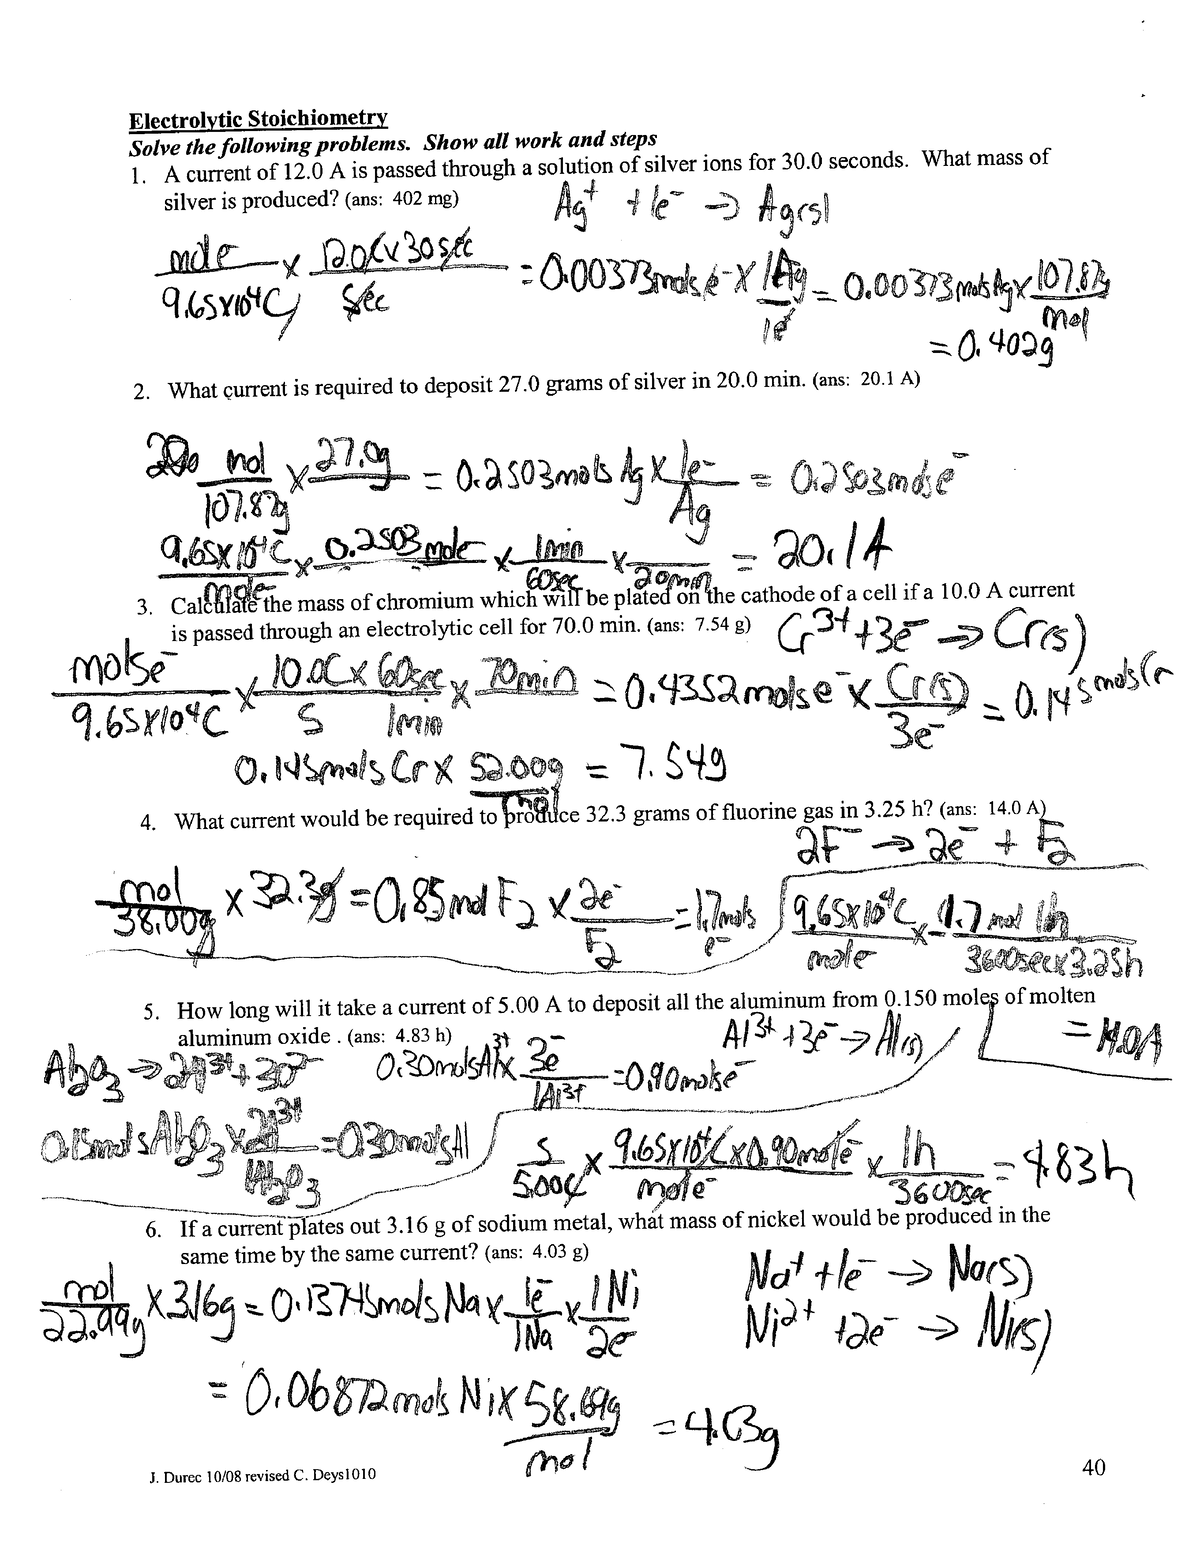 Electrolytic Stoichiometry
Solve the following problems. Show all work and steps
1. A current of 12.0 A is passed through a solution of silver ions for 30.0 seconds. What mass of
silver is produced? (ans: 402 mg)
Ag⁺ + 1e⁻ → Ag(s)
mole / 9.65x10⁴C x 12.0C x 30sec / sec = 0.00373mols e⁻ x 1Ag / 1e⁻ = 0.00373mols Ag x 107.87g / mol
= 0.402g
2. What current is required to deposit 27.0 grams of silver in 20.0 min. (ans: 20.1 A)
mol / 107.87g x 27.0g = 0.2503mols Ag x 1e⁻ / Ag = 0.2503mol e⁻
9.65x10⁴C / mole⁻ x 0.2503mole⁻ x 1min / 60sec x / 20min = 20.1A
3. Calculate the mass of chromium which will be plated on the cathode of a cell if a 10.0 A current
is passed through an electrolytic cell for 70.0 min. (ans: 7.54 g)
Cr³⁺ + 3e⁻ → Cr(s)
molse⁻ / 9.65x10⁴C x 10.0C x 60sec / S 1min x 70min = 0.4352molse⁻ x Cr(s) / 3e⁻ = 0.145mols Cr
0.145mols Cr x 52.00g / mol = 7.54g
4. What current would be required to produce 32.3 grams of fluorine gas in 3.25 h? (ans: 14.0 A)
2F⁻ → 2e⁻ + F₂
mol / 38.00g x 32.3g = 0.85mol F₂ x 2e⁻ / F₂ = 1.7mols e⁻
9.65x10⁴C / mole⁻ x 1.7mol 1h / 3600sec x 3.25h
= 14.0A
5. How long will it take a current of 5.00 A to deposit all the aluminum from 0.150 moles of molten
aluminum oxide . (ans: 4.83 h)
Al³⁺ + 3e⁻ → Al(s)
Al₂O₃ → 2Al³⁺ + 3O²⁻
0.30molsAl³⁺ x 3e⁻ / 1Al³⁺ = 0.90molse⁻
0.15mols Al₂O₃ x 2Al³⁺ / 1Al₂O₃ = 0.30molsAl
S / 5.00C x 9.65x10⁴C x 0.90mole⁻ / mole⁻ x 1h / 3600sec = 4.83h
6. If a current plates out 3.16 g of sodium metal, what mass of nickel would be produced in the
same time by the same current? (ans: 4.03 g)
Na⁺ + 1e⁻ → Na(s)
Ni²⁺ + 2e⁻ → Ni(s)
mol / 22.99g x 3.16g = 0.13745mols Na x 1e⁻ / 1Na x 1Ni / 2e⁻
= 0.06872mols Ni x 58.69g / mol = 4.03g
J. Durec 10/08 revised C. Deys1010
40